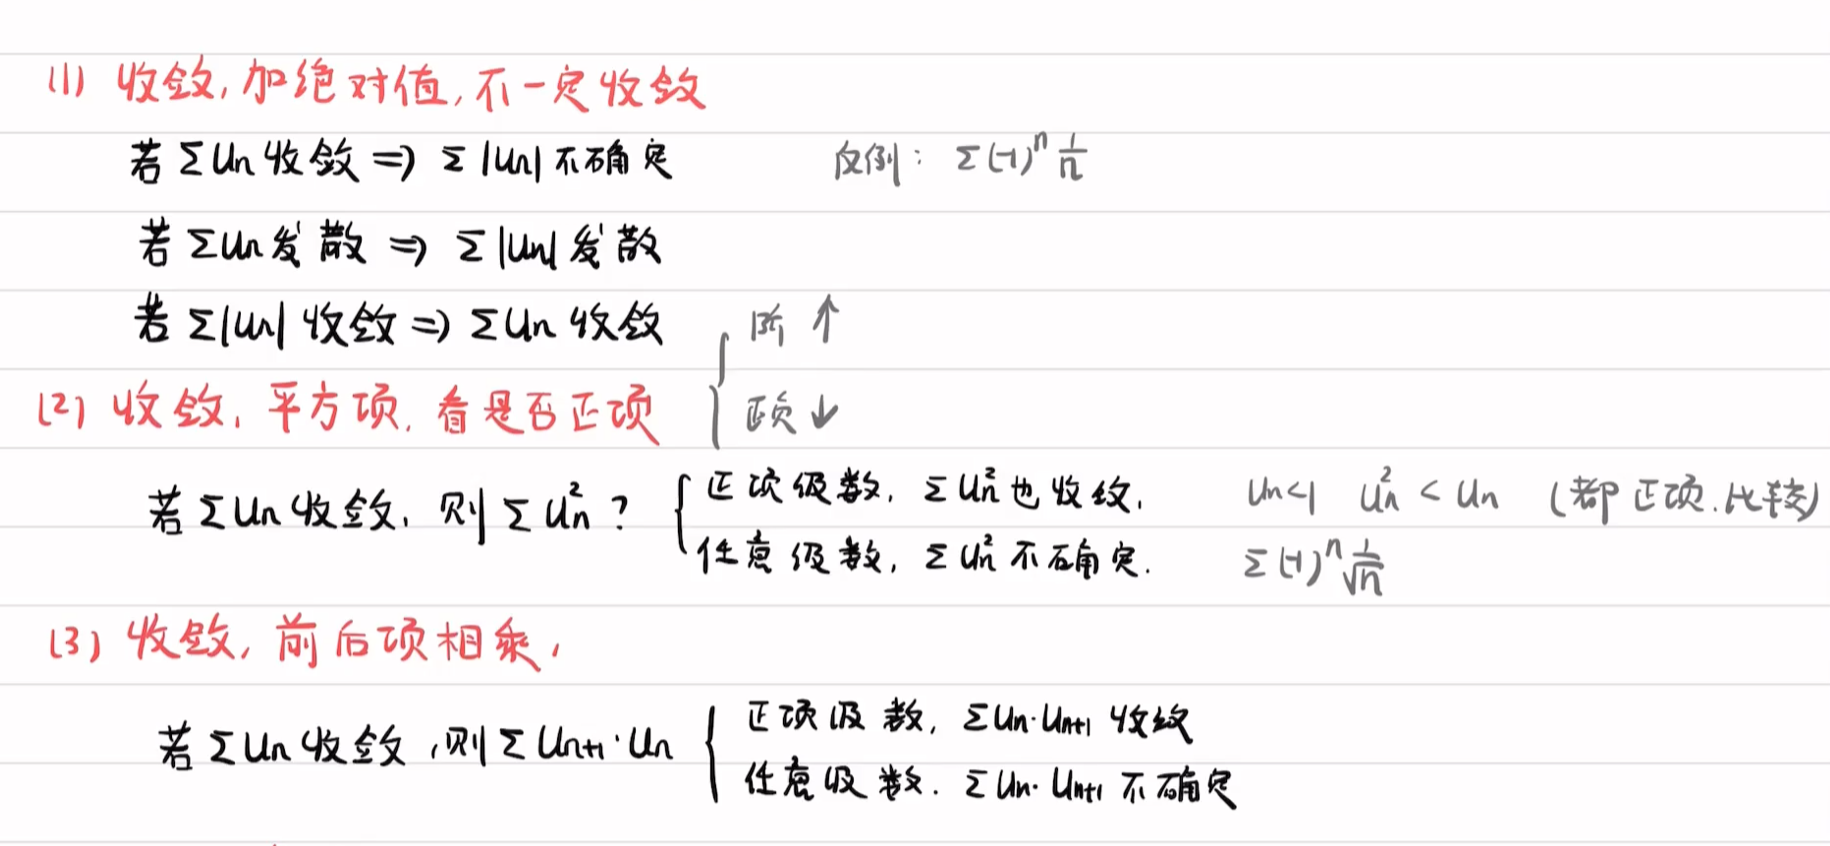 (1) 收敛,加绝对值,不一定收敛
若 ΣUn 收敛 => Σ|Un| 不确定 反例: Σ(-1)^n 1/n
若 ΣUn 发散 => Σ|Un| 发散
若 Σ|Un| 收敛 => ΣUn 收敛
阶 ↑
(2) 收敛, 平方项, 看是否正项
正负 ↓
若 ΣUn 收敛, 则 ΣUn² ?
正项级数, ΣUn² 也收敛. Un<1 Un² < Un (都正项.比较)
任意级数, ΣUn² 不确定. Σ(-1)^n 1/√n
(3) 收敛, 前后项相乘,
若 ΣUn 收敛 ,则 ΣUn+1·Un
正项级数, ΣUn·Un+1 收敛
任意级数. ΣUn·Un+1 不确定